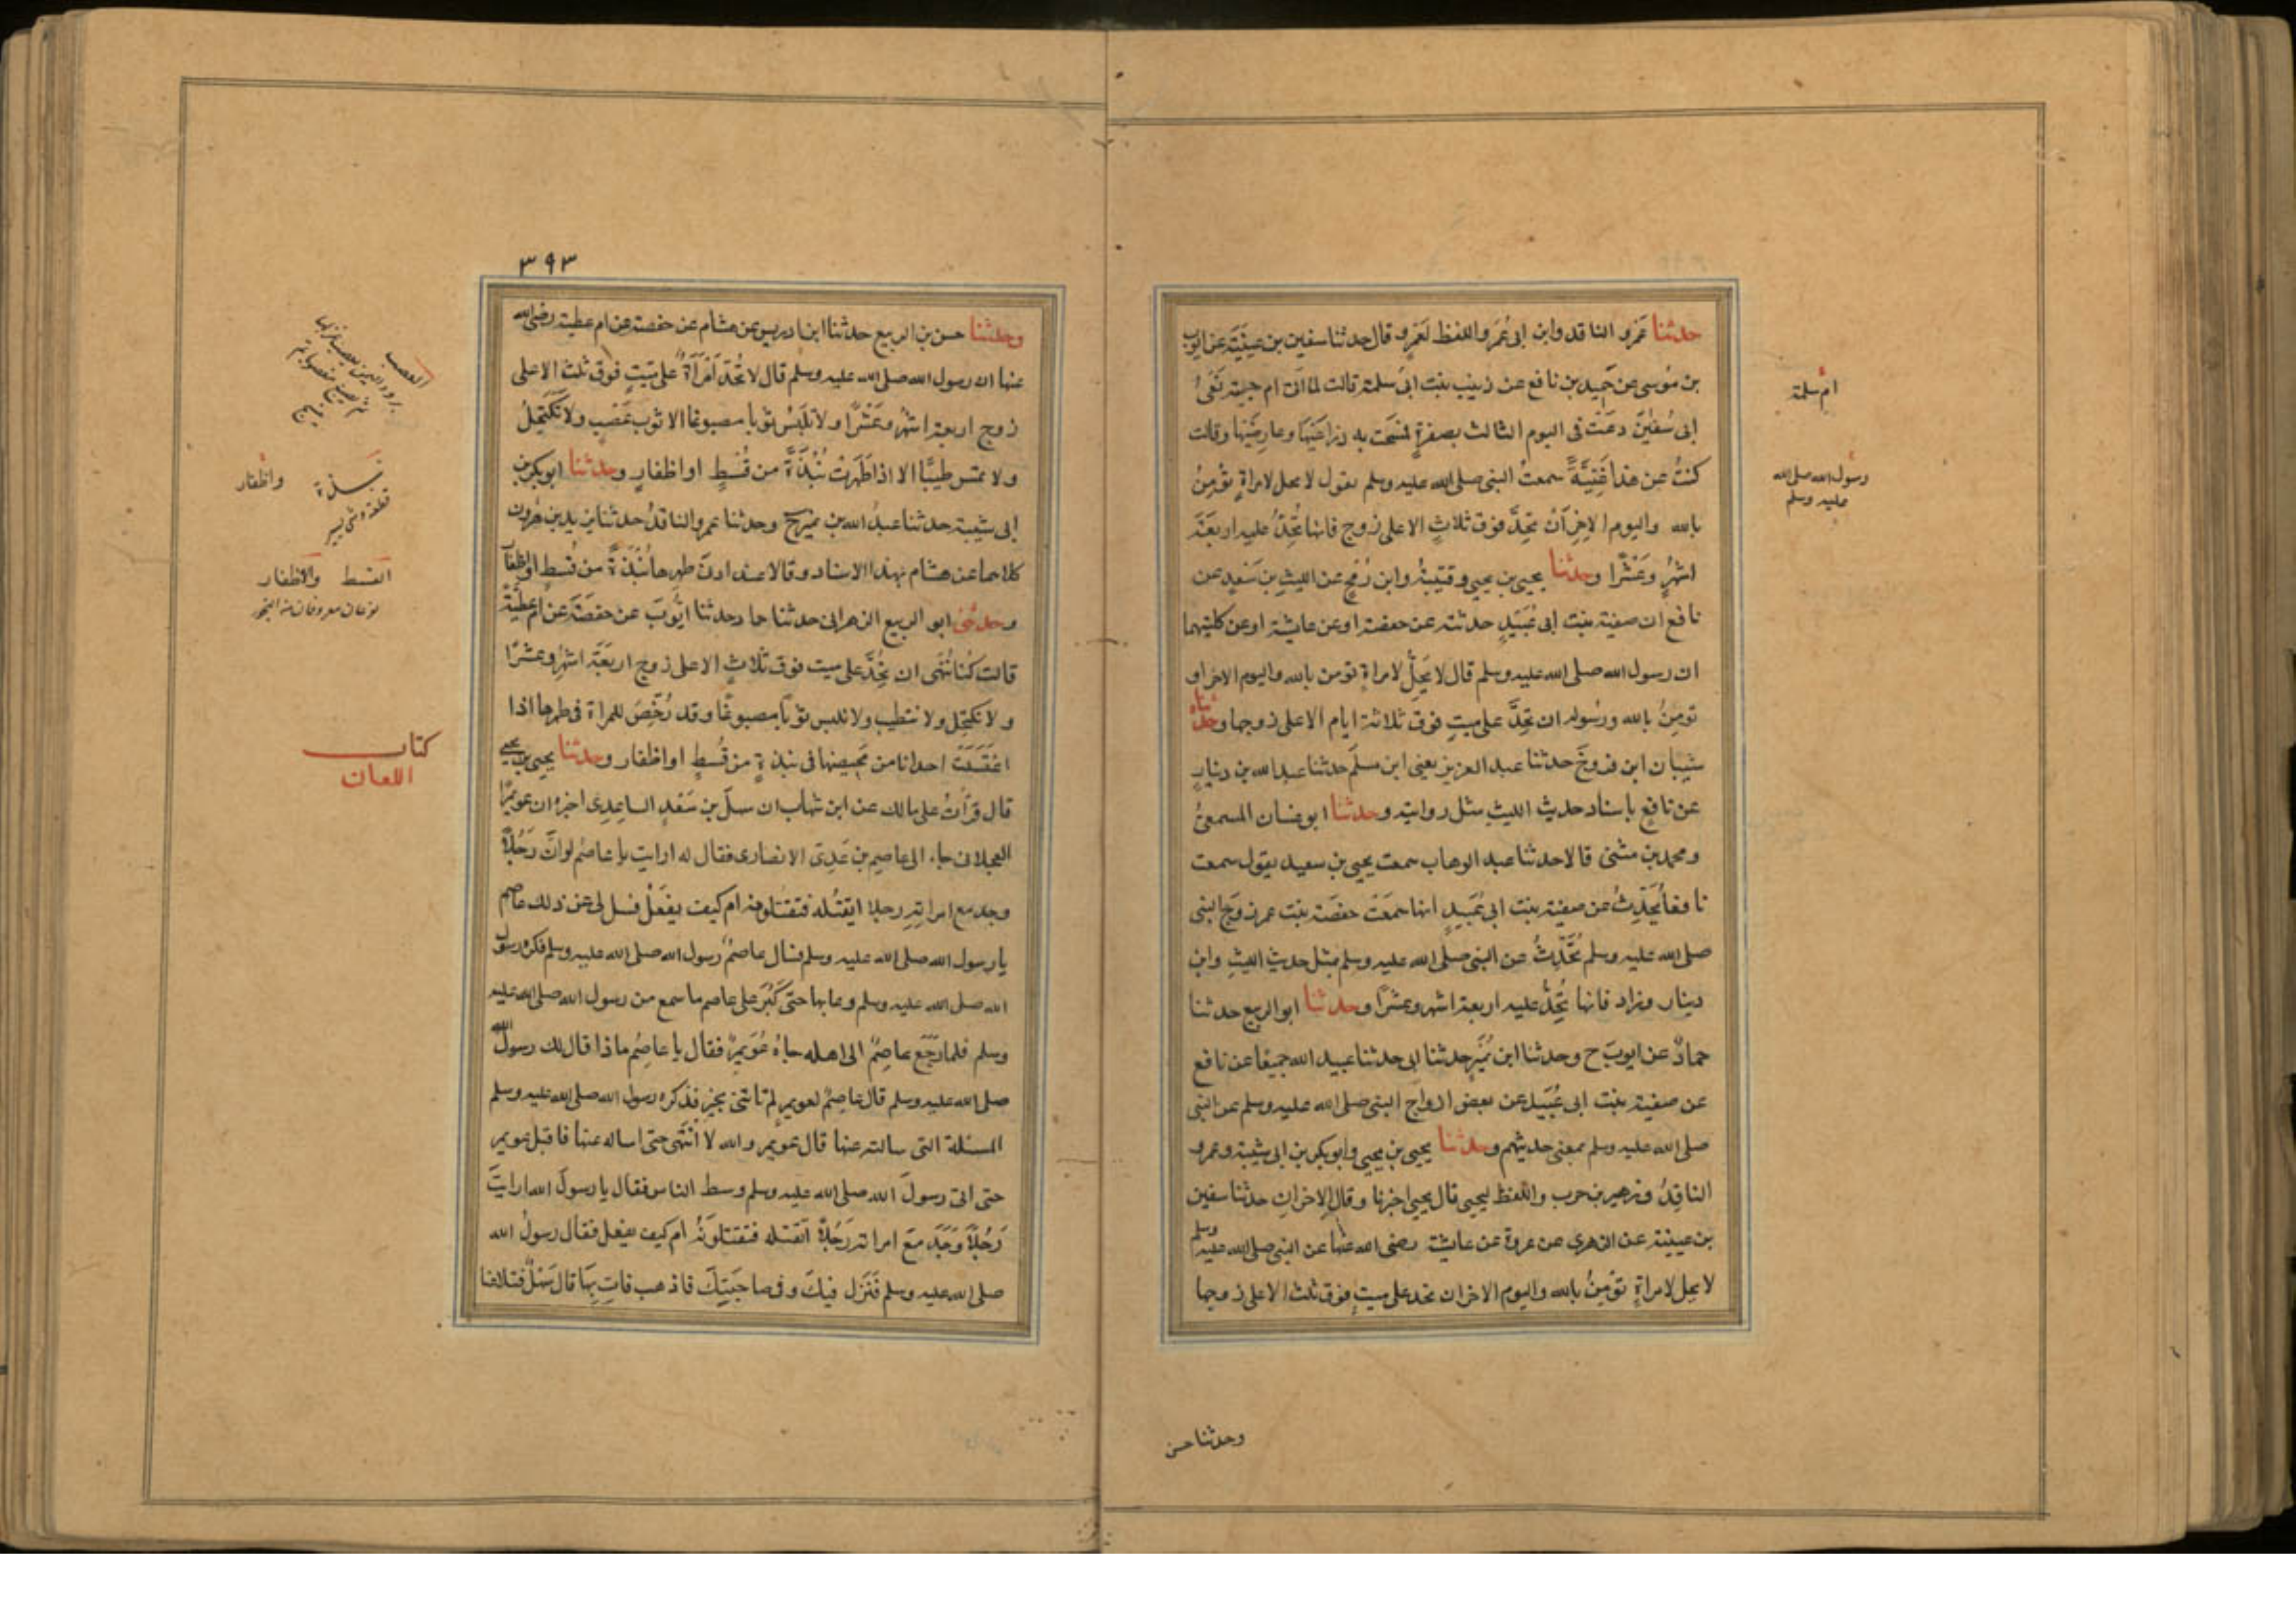 حدثنا عَمرو الناقد وابن ابى عُمَر واللفظ لعَمرٍو قال حدثنا سفين بن عيينة عن ايوب
بن مُوسى عن حميد بن نافع عن زينب بنت ابى سلمة قالت لما اتى ام حبيبة نَعْىُ
ابى سُفيٰن دعَت فى اليوم الثالث بصفرةٍ فمسَحت به ذراعَيْهَا وعارضَيْهَا وقالت
كنتُ عن هذا غَنِيَّةً سمعتُ النبى صلى الله عليه وسلم يقول لا يحل لامراةٍ تؤمِنُ
بالله واليوم الاخِر أنْ تحِدَّ فوق ثلاثٍ الا على زوج فانها تُحِدُّ عليه اربعَةَ
اشهُرٍ وعَشْرًا وحدثنا يحيى بن يحيى وقتيبةُ وابن رُمحٍ عن الليثِ بن سَعدٍ عن
نافع ان صفية بنت ابى عُبَيدٍ حدثته عن حفصة او عن عايشة او عن كلتيهما
ان رسول الله صلى الله عليه وسلم قال لا يَحِلُّ لامراةٍ تومن بالله واليوم الاخر او
تومِنُ بالله ورسُوله ان تحِدَّ على ميتٍ فوقَ ثلاثة ايام الا على زوجها وحدثناه
شيبان ابن فروخَ حدثنا عبد العزيز يعنى ابن مسلَم حدثنا عبد الله بن دينارٍ
عن نافعٍ باسناد حديث الليثِ مثل روايته وحدثنا ابو غسان المسمعىُّ
ومحمد بن مثنى قالا حدثنا عبد الوهاب سمعت يحيى بن سعيد يقول سمعت
نافعاً يُحَدِّثُ عن صفية بنت ابى عُبَيدٍ انها سَمعَتْ حفصَة بنت عمر زوجَ النبى
صلى الله عليه وسلم تُحَدِّثُ عن النبى صلى الله عليه وسلم بمثل حديث الليثِ وابن
دينار وزاد فانها تُحِدُّ عليه اربعة اشهر وعشرًا وحدثنا ابو الربيع حدثنا
حمادٌ عن ايوبَ ح وحدثنا ابن نُمَيرٍ حدثنا ابى حدثنا عبيد الله جميعًا عن نافع
عن صفية بنت ابى عُبَيد عن بعض ازواج النبى صلى الله عليه وسلم عن النبى
صلى الله عليه وسلم بمعنى حديثهم وحدثنا يحيى بن يحيى وابو بكر بن ابى شيبة وعمرو
الناقِدُ وزهير بن حرب واللفظ ليحيى قال يحيى اخبرنا وقال الاخرانِ حدثنا سفين
بن عيينة عن الزهرى عن عروة عن عايشة رضى الله عنها عن النبى صلى الله عليه وسلم
لا يحِل لامراةٍ تؤمِنُ بالله واليوم الاخر ان تحد على ميتٍ فوق ثلث الا على زوجها
ام سلمة
رسول الله صلى الله
عليه وسلم
وحدثنا حسن
٣٩٣
وحدثنا حسن بن الربيع حدثنا ابن ادريس عن هشام عن حفصة عن ام عطية رضى الله
عنها ان رسول الله صلى الله عليه وسلم قال لا تُحدّ امْرَأةٌ على ميّتٍ فوق ثلث الا على
زوج اربعة اشهُرٍ وعَشْرًا ولا تلبَسُ ثوبا مصبوغا الا ثوبَ عَصْبٍ ولا تكتَحِلُ
ولا تمس طيبًا الا اذا طَهرَتْ نُبْذَةً من قُسْطٍ او اظفارٍ وحدثنا ابو بكر بن
ابى شيبة حدثنا عبدُ الله بن نميرٍ ح وحدثنا عمرو الناقدُ حدثنا يزيد بن هٰرون
كلاهما عن هشام بهذا الاسناد وقالا عند ادنَى طهرها نُبْذَةً من قُسطٍ واظفارٍ
وحدثنى ابو الربيع الزهرانى حدثنا حماد حدثنا ايُّوبَ عن حفصَةَ عن ام عطِيَّةَ
قالت كُنا نُنهَى ان نُحِدَّ على ميت فوق ثلاثٍ الا على زوج اربَعَةَ اشهُرٍ وعشرًا
ولا نكتحِل ولا نتطيب ولا نلبس ثوبًا مصبوغًا وقد رُخِّصَ للمراة فى طهرها اذا
اغتسَلَتْ احدانا من مَحِيضِهَا فى نبذةٍ من قُسطٍ او اظفار وحدثنا يحيى بن يحيى
قال قرَأتُ على مالك عن ابن شهاب ان سهلَ بن سَعْدٍ الساعِدِى اخبره ان عويمرًا
العجلانى جاء الى عاصِمِ بن عَدِىّ الانصارى فقال له ارايت يا عاصِمُ لو انّ رَجُلًا
وجد مع امراتِهِ رجلا ايقتُله فتقتُلونه ام كيف يفعَلْ فسل لى عن ذلك عاصم
يا رسول الله صلى الله عليه وسلم فسال عاصمٌ رسول الله صلى الله عليه وسلم فكره رسول
الله صلى الله عليه وسلم وعابها حتى كَبُرَ على عاصم ما سمع من رسول الله صلى الله عليه
وسلم فلما رَجَع عاصِمٌ الى اهله جاءهُ عُوَيمِرٌ فقال يا عاصِمُ ماذا قال لك رسولُ الله
صلى الله عليه وسلم قال عاصِمٌ لعويمرٍ لم تاتنى بخيرٍ قد كره رسول الله صلى الله عليه وسلم
المسئلة التى سالته عنها قال عويمر والله لا أنْتَهى حتى اساله عنها فاقبل عويمر
حتى اتى رسولَ الله صلى الله عليه وسلم وسط الناس فقال يا رسولَ الله ارايتَ
رَجُلًا وَجَدَ مَعَ امراته رَجُلًا ايقتله فتقتلونَهُ ام كيف يفعل فقال رسولُ الله
صلى الله عليه وسلم قد نَزَل فيكَ وفى صاحبَتِكَ فاذهب فاتِ بِهَا قال سَهْلٌ فتلاعنا
العصب
نبذة واظفار
قطعة وشى يسير
القسط والاظفار
نوعان معروفان من البخور
كتاب
اللعان